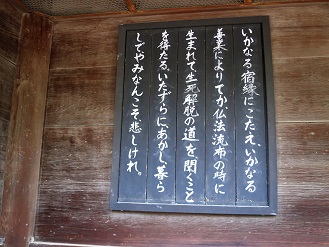 いかなる宿縁にこたえ、いかなる
善業によりてか仏法流布の時に
生まれて生死解脱の道を聞くこと
を得たる、いたずらにあかし暮ら
してやみなんこそ、悲しけれ。